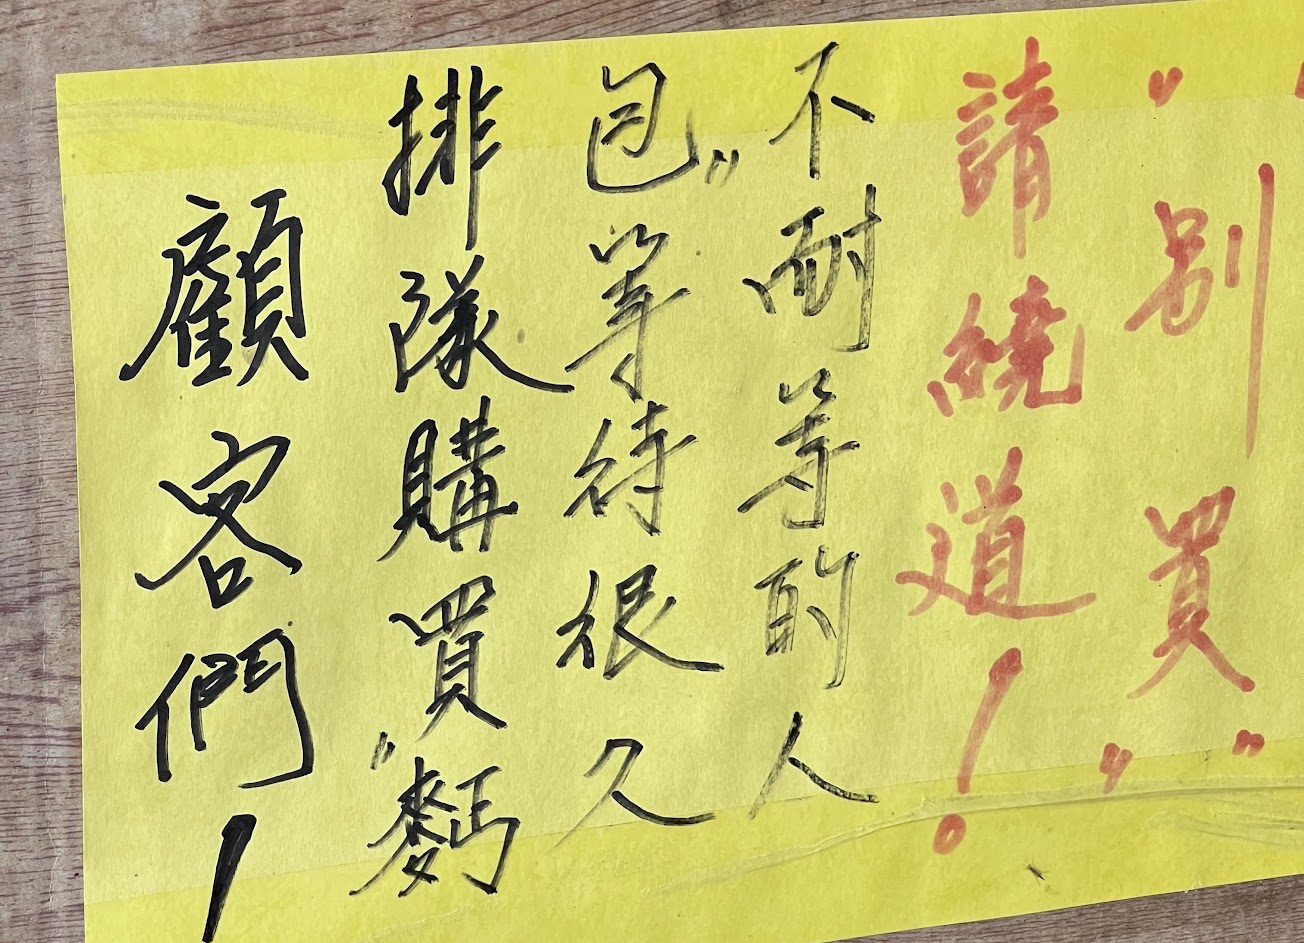 顧客們！
排隊購買"麪
包"等待很久
不耐等的人
請繞道！
"別買"